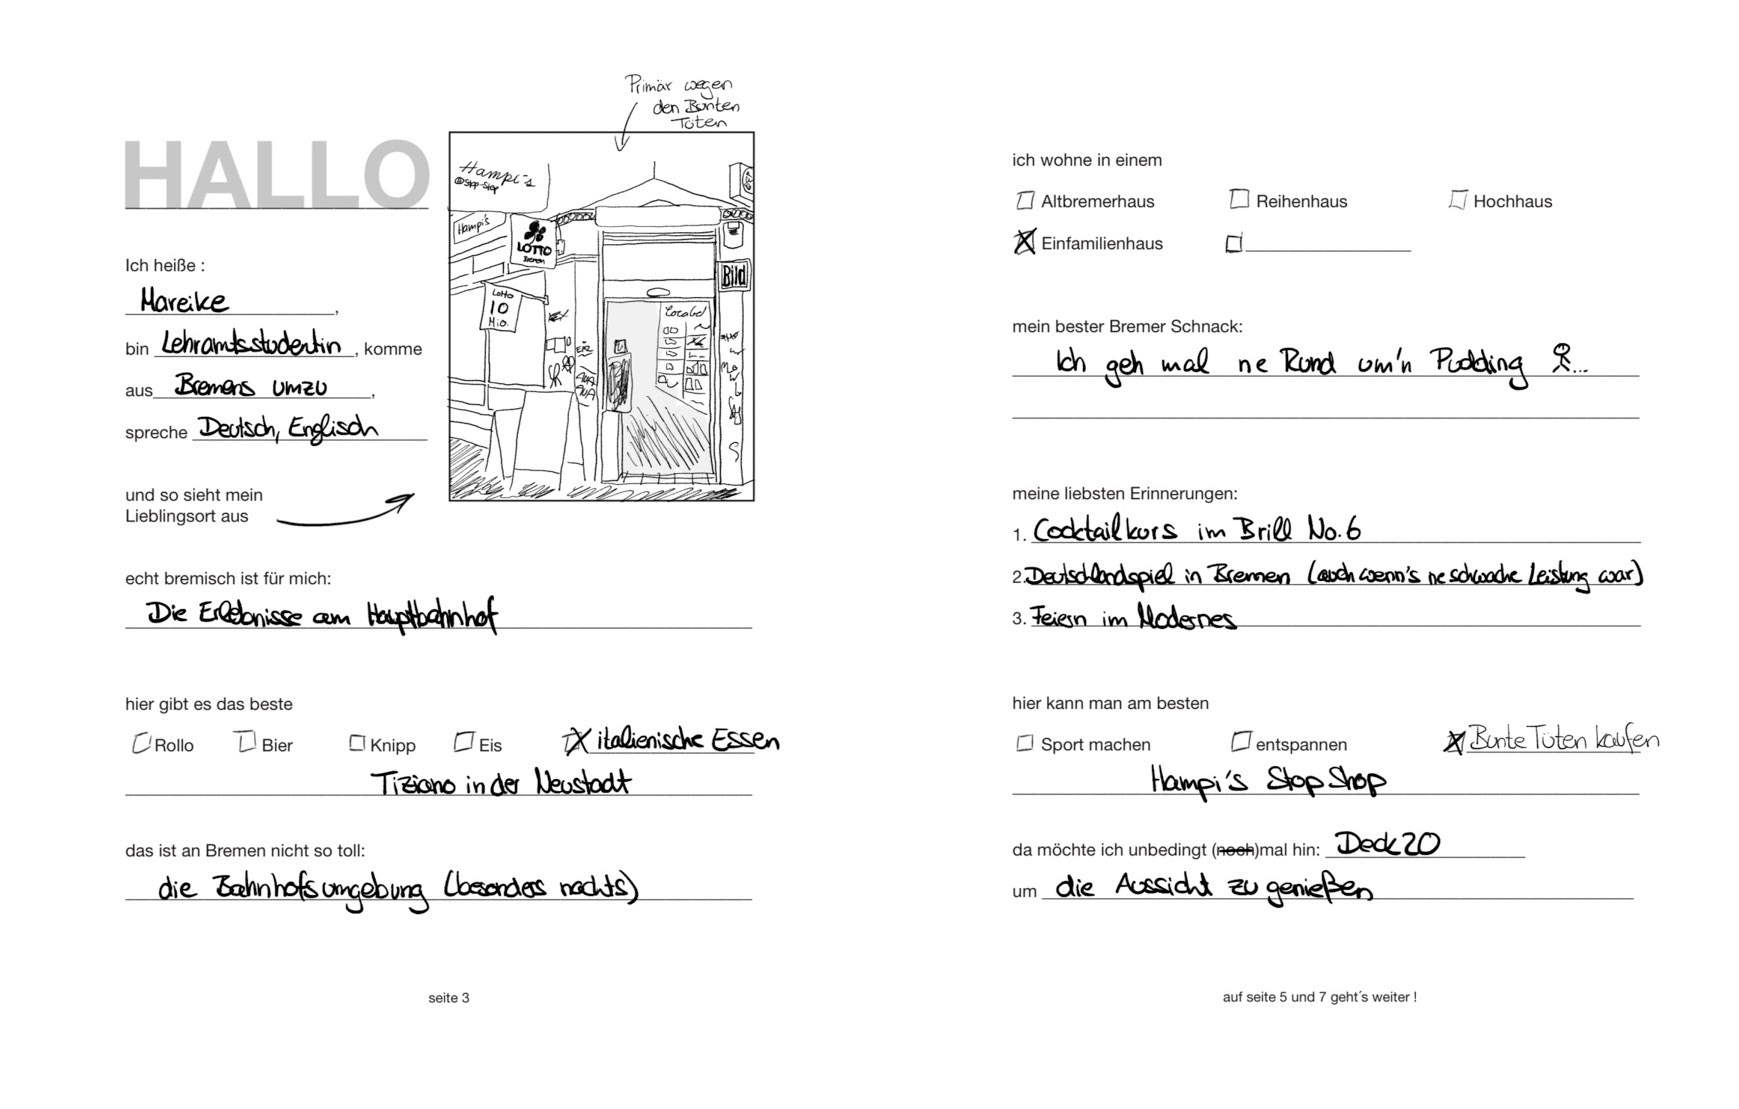 Primär wegen
den Bunten
Tüten
HALLO
Hampi's
@Stop-Shop
Hampi's
LOTTO
Bremen
Bild
Lotto
10
Mio.
Ich heiße :
Mareike,
bin Lehramtsstudentin, komme
aus Bremens umzu,
spreche Deutsch, Englisch
und so sieht mein
Lieblingsort aus
echt bremisch ist für mich:
Die Erlebnisse am Hauptbahnhof
hier gibt es das beste
Rollo Bier Knipp Eis italienische Essen
Tiziano in der Neustadt
das ist an Bremen nicht so toll:
die Bahnhofsumgebung (besonders nachts)
seite 3
ich wohne in einem
Altbremerhaus Reihenhaus Hochhaus
Einfamilienhaus
mein bester Bremer Schnack:
Ich geh mal ne Rund um'n Pudding ...
meine liebsten Erinnerungen:
1. Cocktailkurs im Brill No.6
2. Deutschlandspiel in Bremen (auch wenn's ne schwache Leistung war)
3. Feiern im Modernes
hier kann man am besten
Sport machen entspannen Bunte Tüten kaufen
Hampi's Stop Shop
da möchte ich unbedingt (noch)mal hin: Deck 20
um die Aussicht zu genießen
auf seite 5 und 7 geht´s weiter !